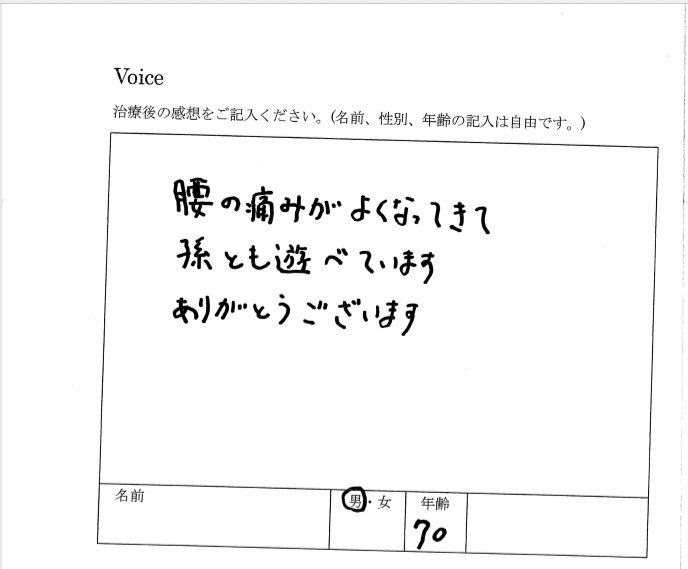 Voice
治療後の感想をご記入ください。(名前、性別、年齢の記入は自由です。)
腰の痛みがよくなってきて
孫とも遊べています
ありがとうございます
名前
男・女
年齢
70